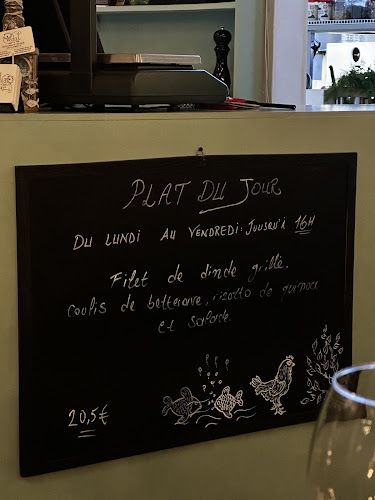 PLAT DU JOUR
DU LUNDI AU VENDREDI: JUUSQU'À 16H
Filet de dinde grillé.
coulis de betterave, risotto de quinoa
et salade.
20,5€